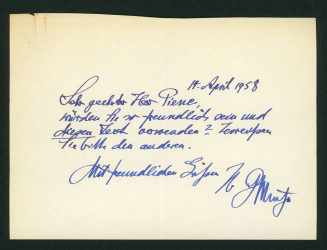 14. April 1958
Sehr geehrter Herr Piene,
würden Sie so freundlich sein und
diesen Text verwenden? Zerreissen
Sie bitte den anderen.
Mit freundlichen Grüßen